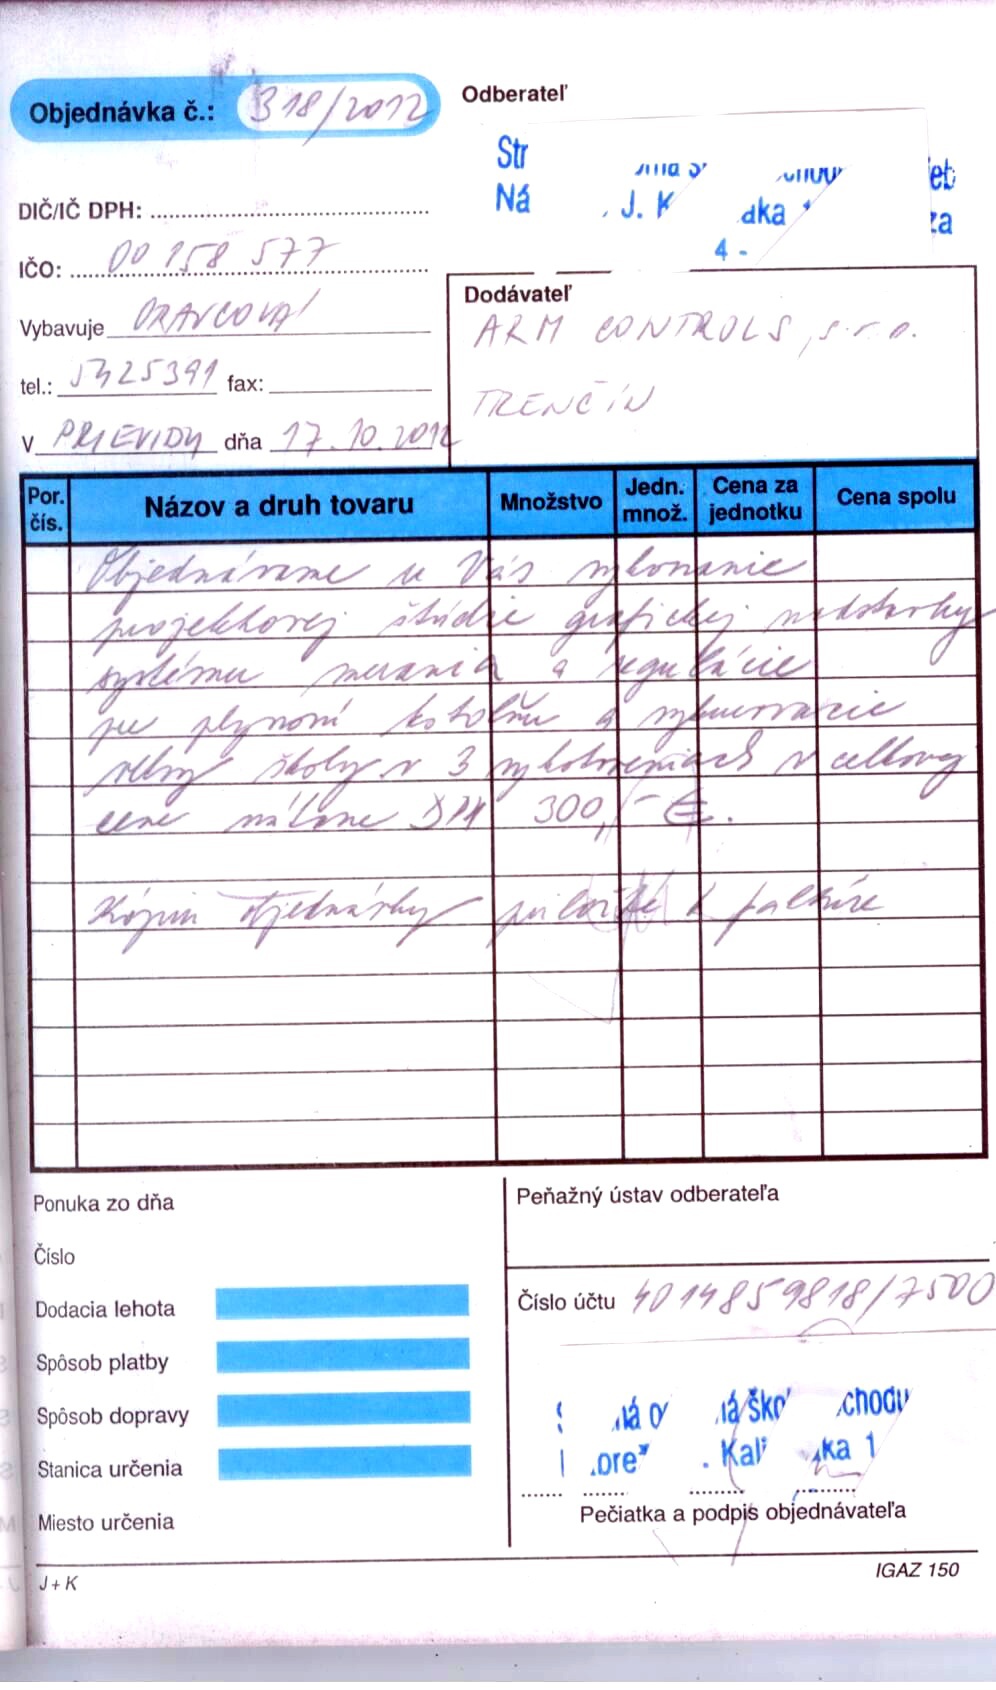 Objednávka č.: 318/2012
Odberateľ
Str
Ná J. K dka
4 -
DIČ/IČ DPH:
IČO: 00 158 577
Vybavuje ORAVCOVÁ
tel.: 5425391 fax:
V PRIEVIDZI dňa 17.10.2012
Dodávateľ
ARM CONTROLS, s.r.o.
TRENČÍN
Por. čís. Názov a druh tovaru Množstvo Jedn. množ. Cena za jednotku Cena spolu
Objednávame u Vás vykonanie
projektovej štúdie grafickej nadstavby
systému merania a regulácie
pre plynovú kotolňu a vykurovacie
vetvy školy v 3 vyhotoveniach v celkovej
cene vrátane DPH 300,- €.
Kópiu objednávky priložte k faktúre
Ponuka zo dňa
Číslo
Dodacia lehota
Spôsob platby
Spôsob dopravy
Stanica určenia
Miesto určenia
Peňažný ústav odberateľa
Číslo účtu 4014859818/7500
ná o ná ško chodu
ore . Kali ka 1
Pečiatka a podpis objednávateľa
J + K
IGAZ 150